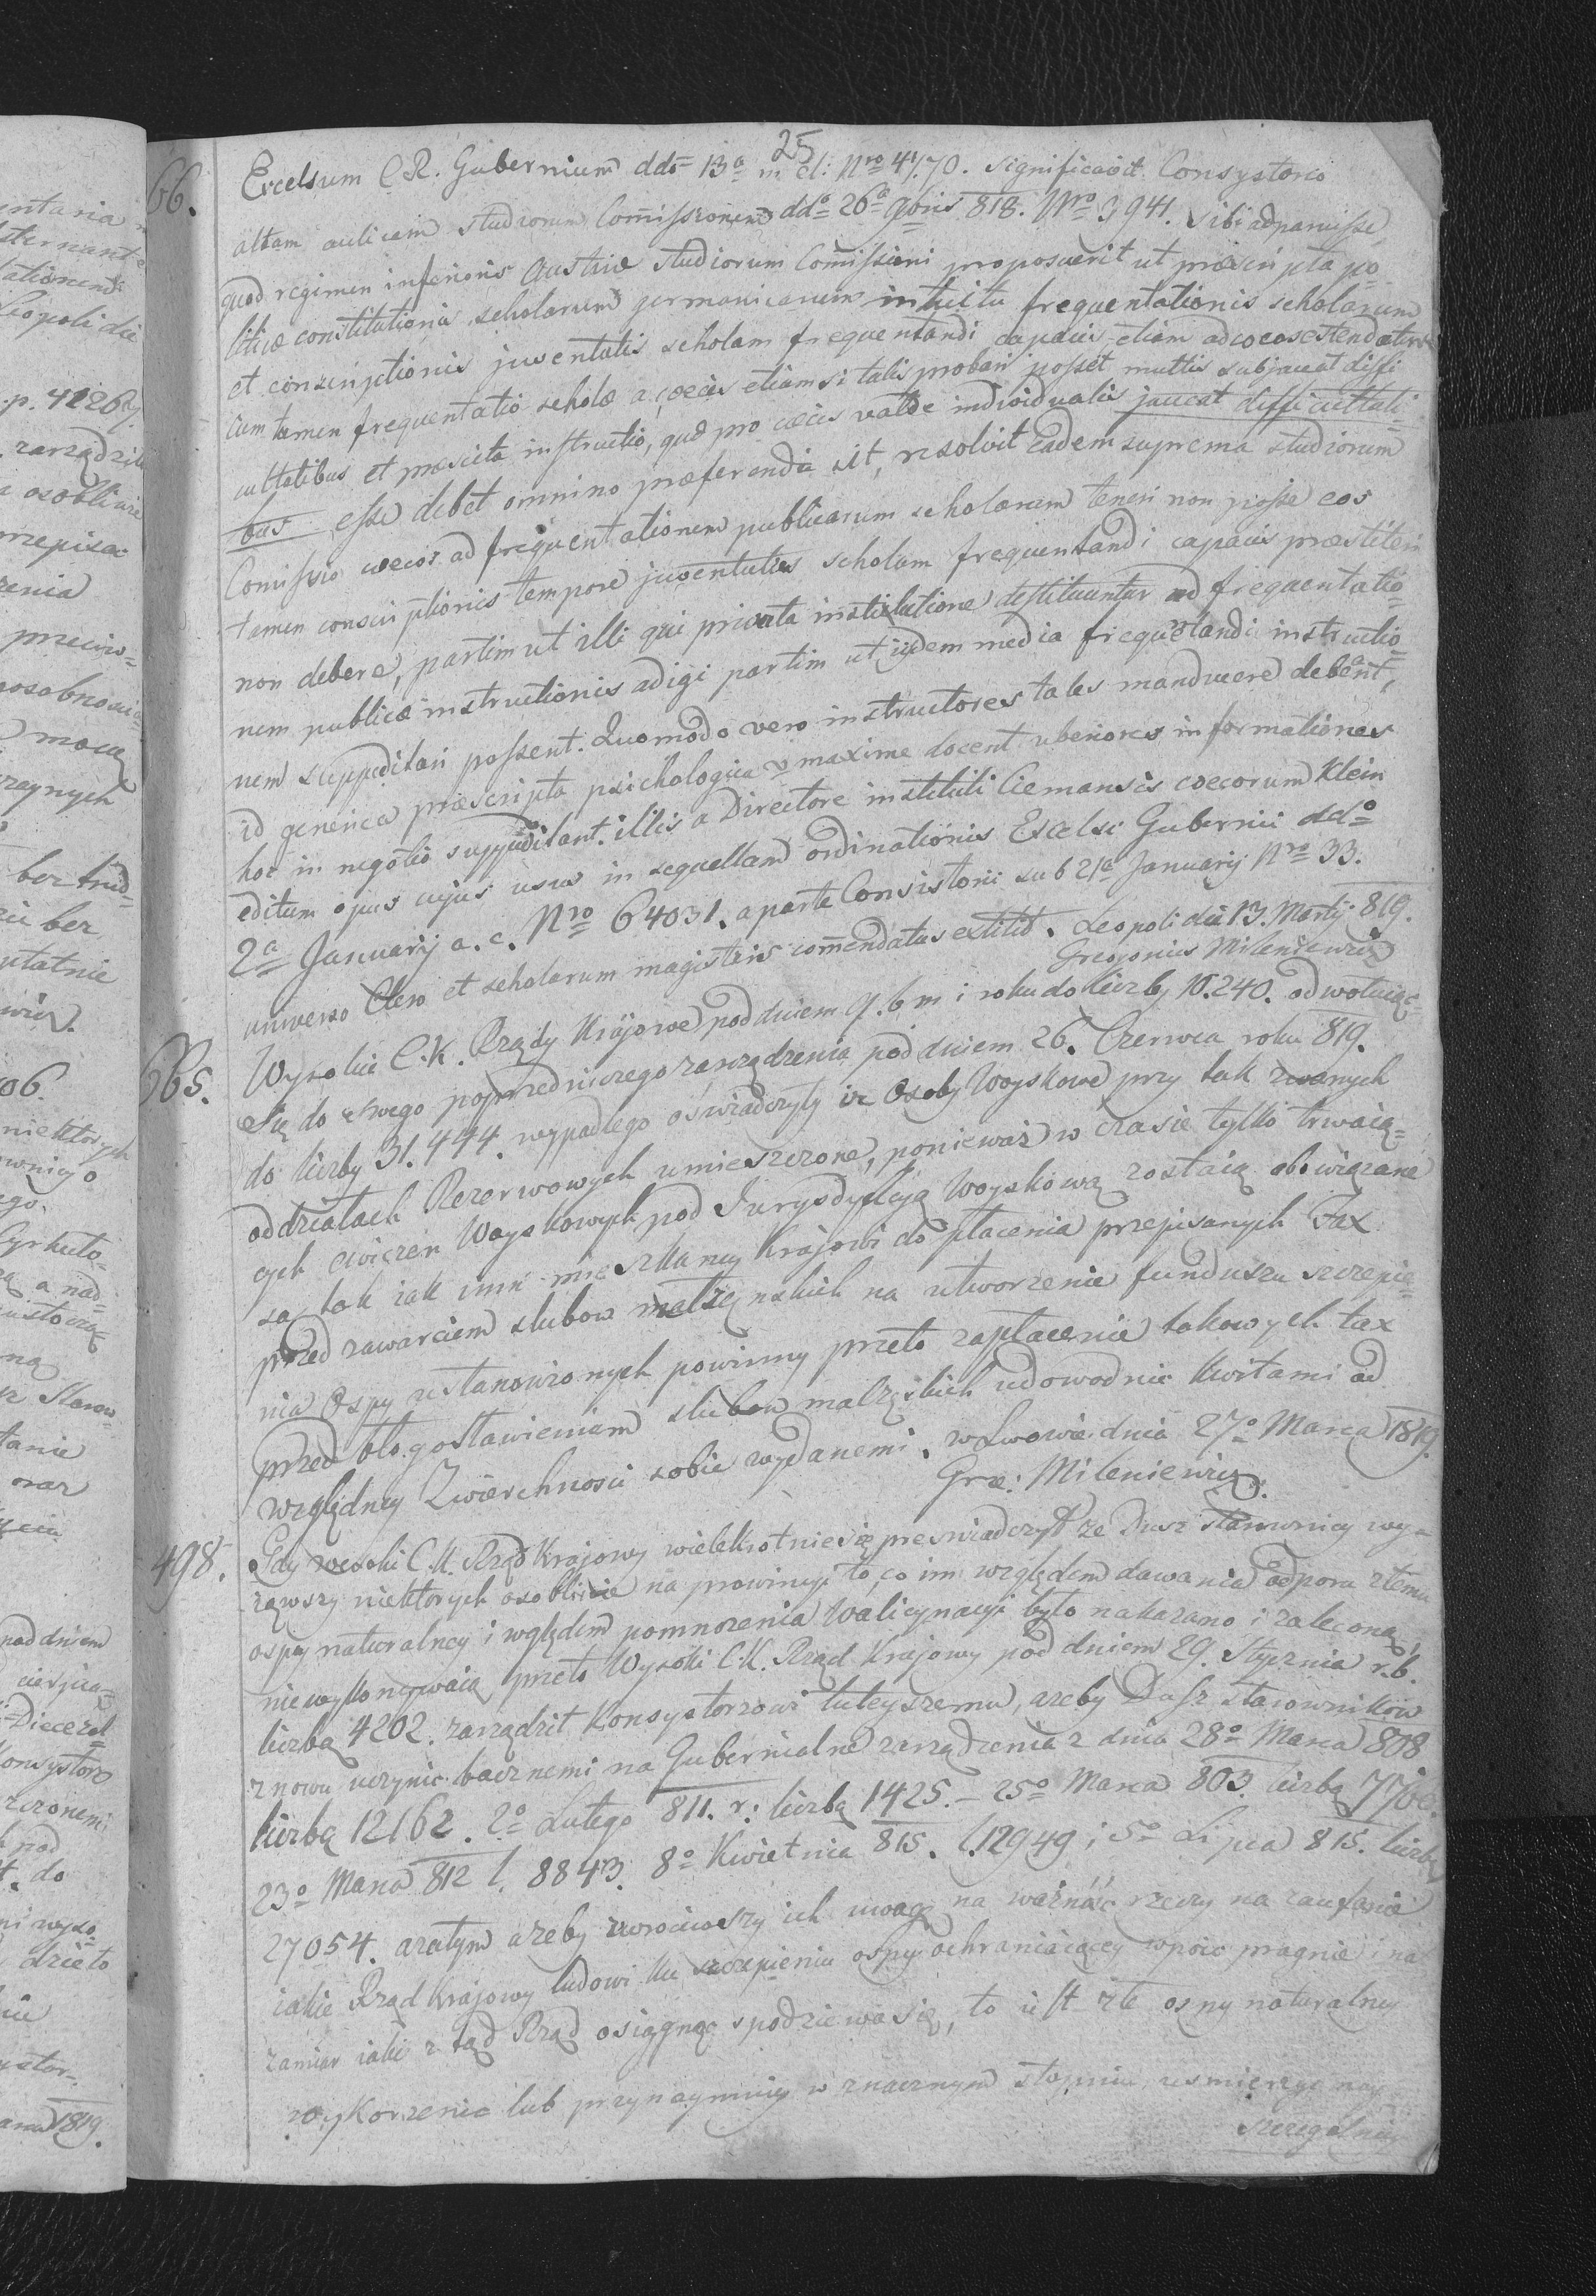 25
66. Excelsum C.R. Gubernium ddo 13a m. el: Nro 4170. significavit Consystorio
altam aulicam studiorum Commissionem ddo 26a 9bris 818. Nro 3941. sibi adparuisse,
quod regimen inferioris Austriæ studiorum Commissioni proposuerit ut præscripta po=
liticæ constitutionis scholarum germanicarum intuitu frequentationis scholarum
et conscriptionis juventutis scholam frequentandi capacis, etiam ad coecos extendatur
cum tamen frequentatio scholæ a coecis etiamsi talis probari posset multis subjaceat diffi
cultatibus et præscita instructio, quæ pro cæcis valde individualis jaceat difficultati=
bus esse debet omnino præferenda sit, resolvit eadem suprema studiorum
Comissio coecos ad frequentationem publicarum scholarum teneri non posse eos
tamen conscriptionis tempore juventutis scholam frequentandi capacis præstiteri
non debere, partim ut illi qui privata institutione destituuntur ad frequentatio=
nem publicæ instructionis adigi partim ut iidem media frequetandi instructio=
nem suppeditari possent. Quomodo vero instructores tales manducere debent,
id generica præscripta psichologica maxime docent uberiores informationes
hoc in negotio suppeditant. illis a Directore instituti coecorum Klein
editum opus cujus usus in sequellam ordinationis Excelsi Gubernii ddo
2a Januarij a. c. Nro 64031. a parte Consistorii sub 21a Januarij Nro 33.
universo Clero et scholarum magistris comendatus extitit. Leopoli die 13. Martij 819.
Gregorius Mileniewicz
665. Wysokie C.K. Rządy Krajowe pod dniem 9. b m i roku do liczby 10.240. odwołuiąc
się do swego poprzedniczego zarządzenia pod dniem 26. Czerwca roku 819.
do liczby 31.444. wypadłego oświadczyły iż Osoby Woyskowe przy tak zwanych
oddziałach Rezerwowych umieszczone, ponieważ w czasie tylko trwaią=
cych cwiczeń Woyskowych pod Jurysdykcyą Woyskową zostaią obowiązane
są tak iak inni mieszkancy Krajowi do płacenia przepisanych Tax
przed zawarciem slubow małżęnskich na utworzenie funduszu szczepie=
nia Ospy ustanowionych powinny przeto zapłacenie takowych tax
przed błogosławieniem slubow małżęskich udowodnic Kwitami od
względney Zwierzchnosci sobie wydanemi. w Lwowie dnia 27o Marca 1819.
Grze: Mileniewicz.
498. Gdy wysoki C.K. Rząd Krajowy wielekrotnie się przeswiadczył że Dusz starownicy wy=
ząwszy niektorych osobliwie na prowincyi to, co im względem dawania odporu złemu
ospy naturalney i względem pomnożenia Wakcynacyi było nakazano i zalecono,
niewykonywaią przeto Wysoki C.K. Rząd Krajowy pod dniem 29. Stycznia r. b.
liczbą 4202. zarządził Konsystorzowi tuteyszemu, ażeby Dusz starownikow
znowu uczynic bacznemi na Gubernialne zarządzenia z dnia 28o Marca 808
liczbą 12162. 2o Lutego 811. r: liczbą 1425. – 25o Marca 803. liczbą
23o Marca 812 l. 8843. 8o Kwietnia 815. l. 12949 i 5o Lipca 815. liczbą
27054. azatym ażeby zwrociwszy ich uwagę na ważność rzeczy na zaufanie
iakie Rząd Krajowy ludowi ku szczepieniu ospy ochraniaiącey wpoic pragnie i na
zamiar iaki z tąd Rząd osiągnąc spodziewa się, to iest złe ospy naturalney
wykorzenic lub przynaymniey w znacznym stopniu usmierzyc nay=
szczegulniey